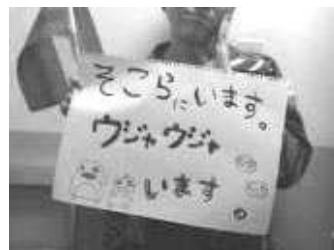 そこらにいます。
ウジャウジャ
います